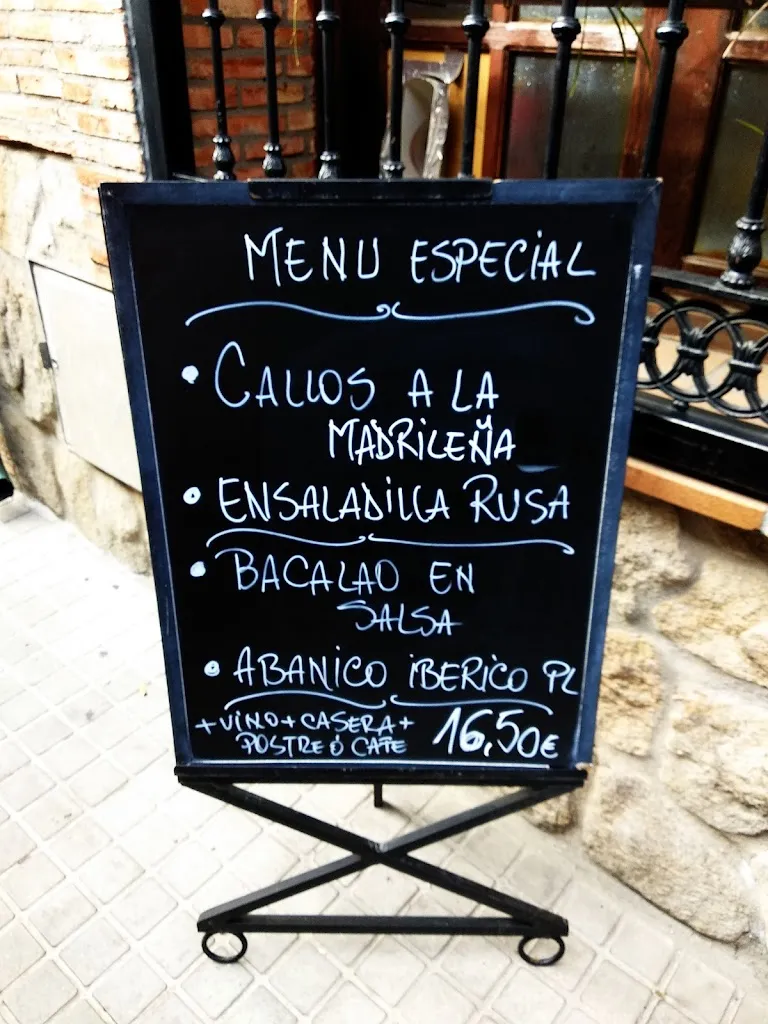 MENU ESPECIAL
• CALLOS A LA
MADRILEÑA
• ENSALADILLA RUSA
• BACALAO EN
SALSA
• ABANICO IBERICO PL
+VINO+CASERA+
POSTRE Ó CAFE 16,50€